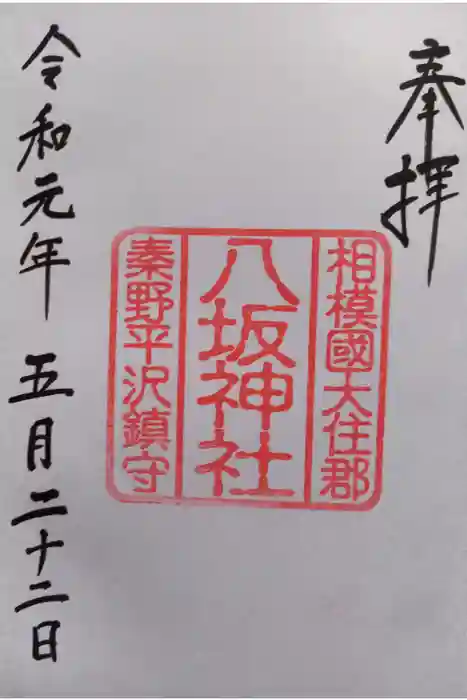 奉拝
相模國大住郡
八坂神社
秦野平沢鎮守
令和元年五月二十二日